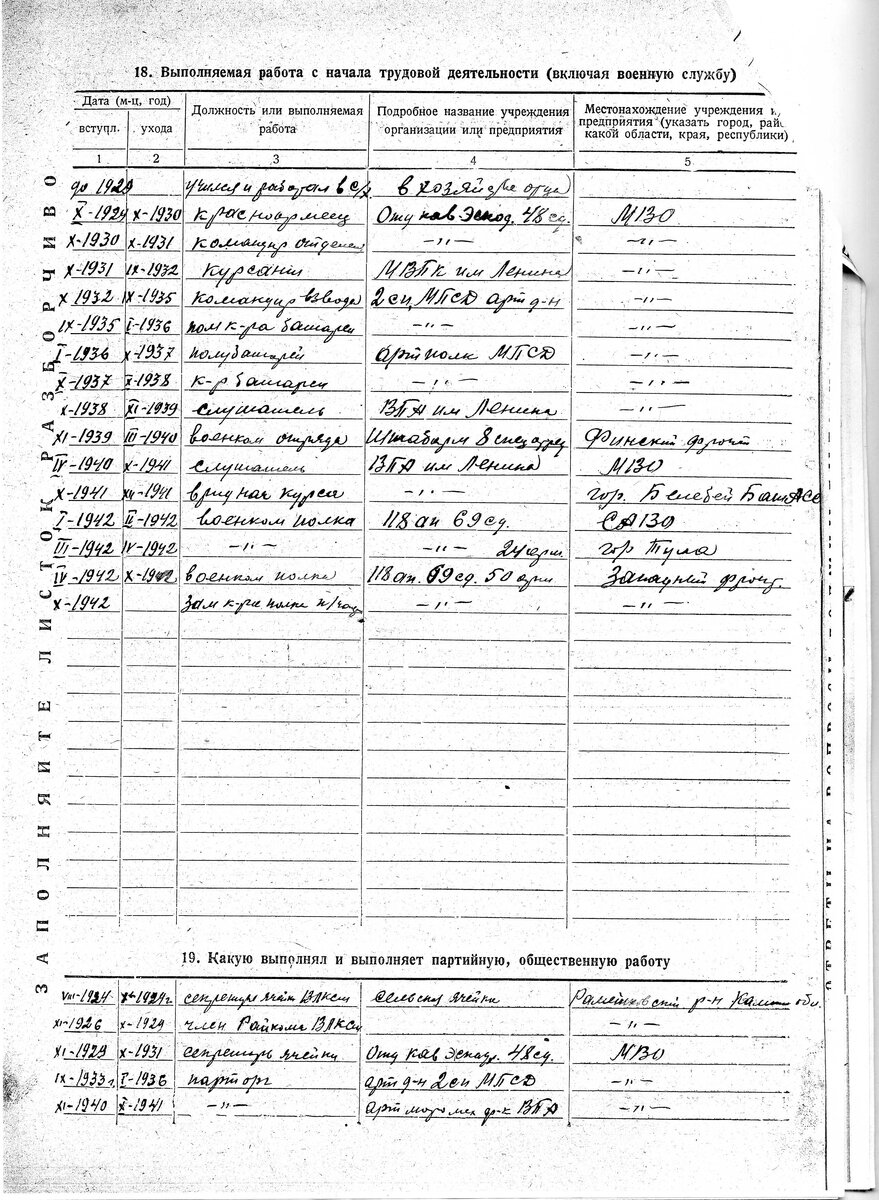 18. Выполняемая работа с начала трудовой деятельности (включая военную службу)
Дата (м-ц, год) Должность или выполняемая работа Подробное название учреждения организации или предприятия Местонахождение учреждения и предприятия (указать город, рай какой области, края, республики)
вступл. ухода
1 2 3 4 5
до 1929 учился и работал в с/х в хозяйстве отца
X-1929 X-1930 красноармеец Отд кав Эскад. 48 сд. МВО
X-1930 X-1931 командир отделен —"— —"—
X-1931 IX-1932 курсант МВПк им Ленина —"—
X 1932 IX-1935 командир взвода 2 сп МПСД арт д-н —"—
IX-1935 I-1936 пом к-ра батареи —"— —"—
I-1936 X-1937 арт полк МПСД —"—
X-1937 X-1938 к-р батареи —"— —"—
X-1938 XI-1939 слушатель ВПА им Ленина —"—
XI-1939 III-1940 военком отряда 8 Финский фронт
IV-1940 X-1941 слушатель ВПА им Ленина МВО
X-1941 XII-1941 врид нач курса —"— гор. Белебей БашАСС
I-1942 II-1942 военком полка 118 ап 69 сд. САВО
III-1942 IV-1942 —"— —"— 24 арм. гор Тула
IV-1942 X-1942 военком полка 118 ап. 69 сд. 50 арм Западный фронт.
X-1942 Зам к-ра полка —"— —"—
ЗАПОЛНЯЙТЕ ЛИСТОК РАЗБОРЧИВО
19. Какую выполнял и выполняет партийную, общественную работу
VIII-1924 X-1929г секретарь ячейк ВЛКСМ Сельская ячейка р-н обл.
XI-1926 X-1929 член Райкома ВЛКСМ —"—
XI-1929 X-1931 секретарь ячейки Отд кав Эскад. 48 сд. МВО
IX-1933г. I-1936 парторг арт д-н 2 сп МПСД —"—
XI-1940 X-1941 —"— ВПА —"—